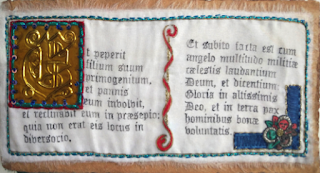 Et peperit
filium suum
primogenitum,
et pannis
eum inbolbit,
et reclinabit eum in præsepio;
quia non erat eis locus in
diversorio.
Et subito facta est cum
angelo multitudo militiæ
cælestis laudantium
Deum, et dicentium
Gloria in altissimis
Deo, et in terra pax
hominibus bonæ
voluntatis.